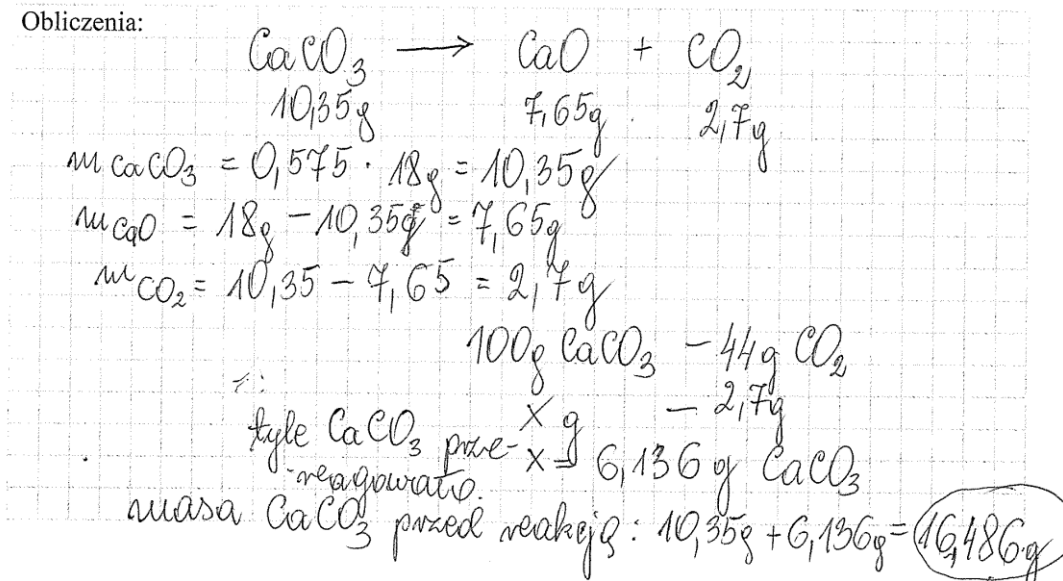 Obliczenia:
CaCO₃ → CaO + CO₂
10,35g 7,65g 2,7g
m CaCO₃ = 0,575 · 18g = 10,35g
m CaO = 18g − 10,35g = 7,65g
m CO₂ = 10,35 − 7,65 = 2,7g
100g CaCO₃ − 44g CO₂
x g − 2,7g
tyle CaCO₃ prze- x = 6,136g CaCO₃
-reagowało.
masa CaCO₃ przed reakcją: 10,35g + 6,136g = 16,486g